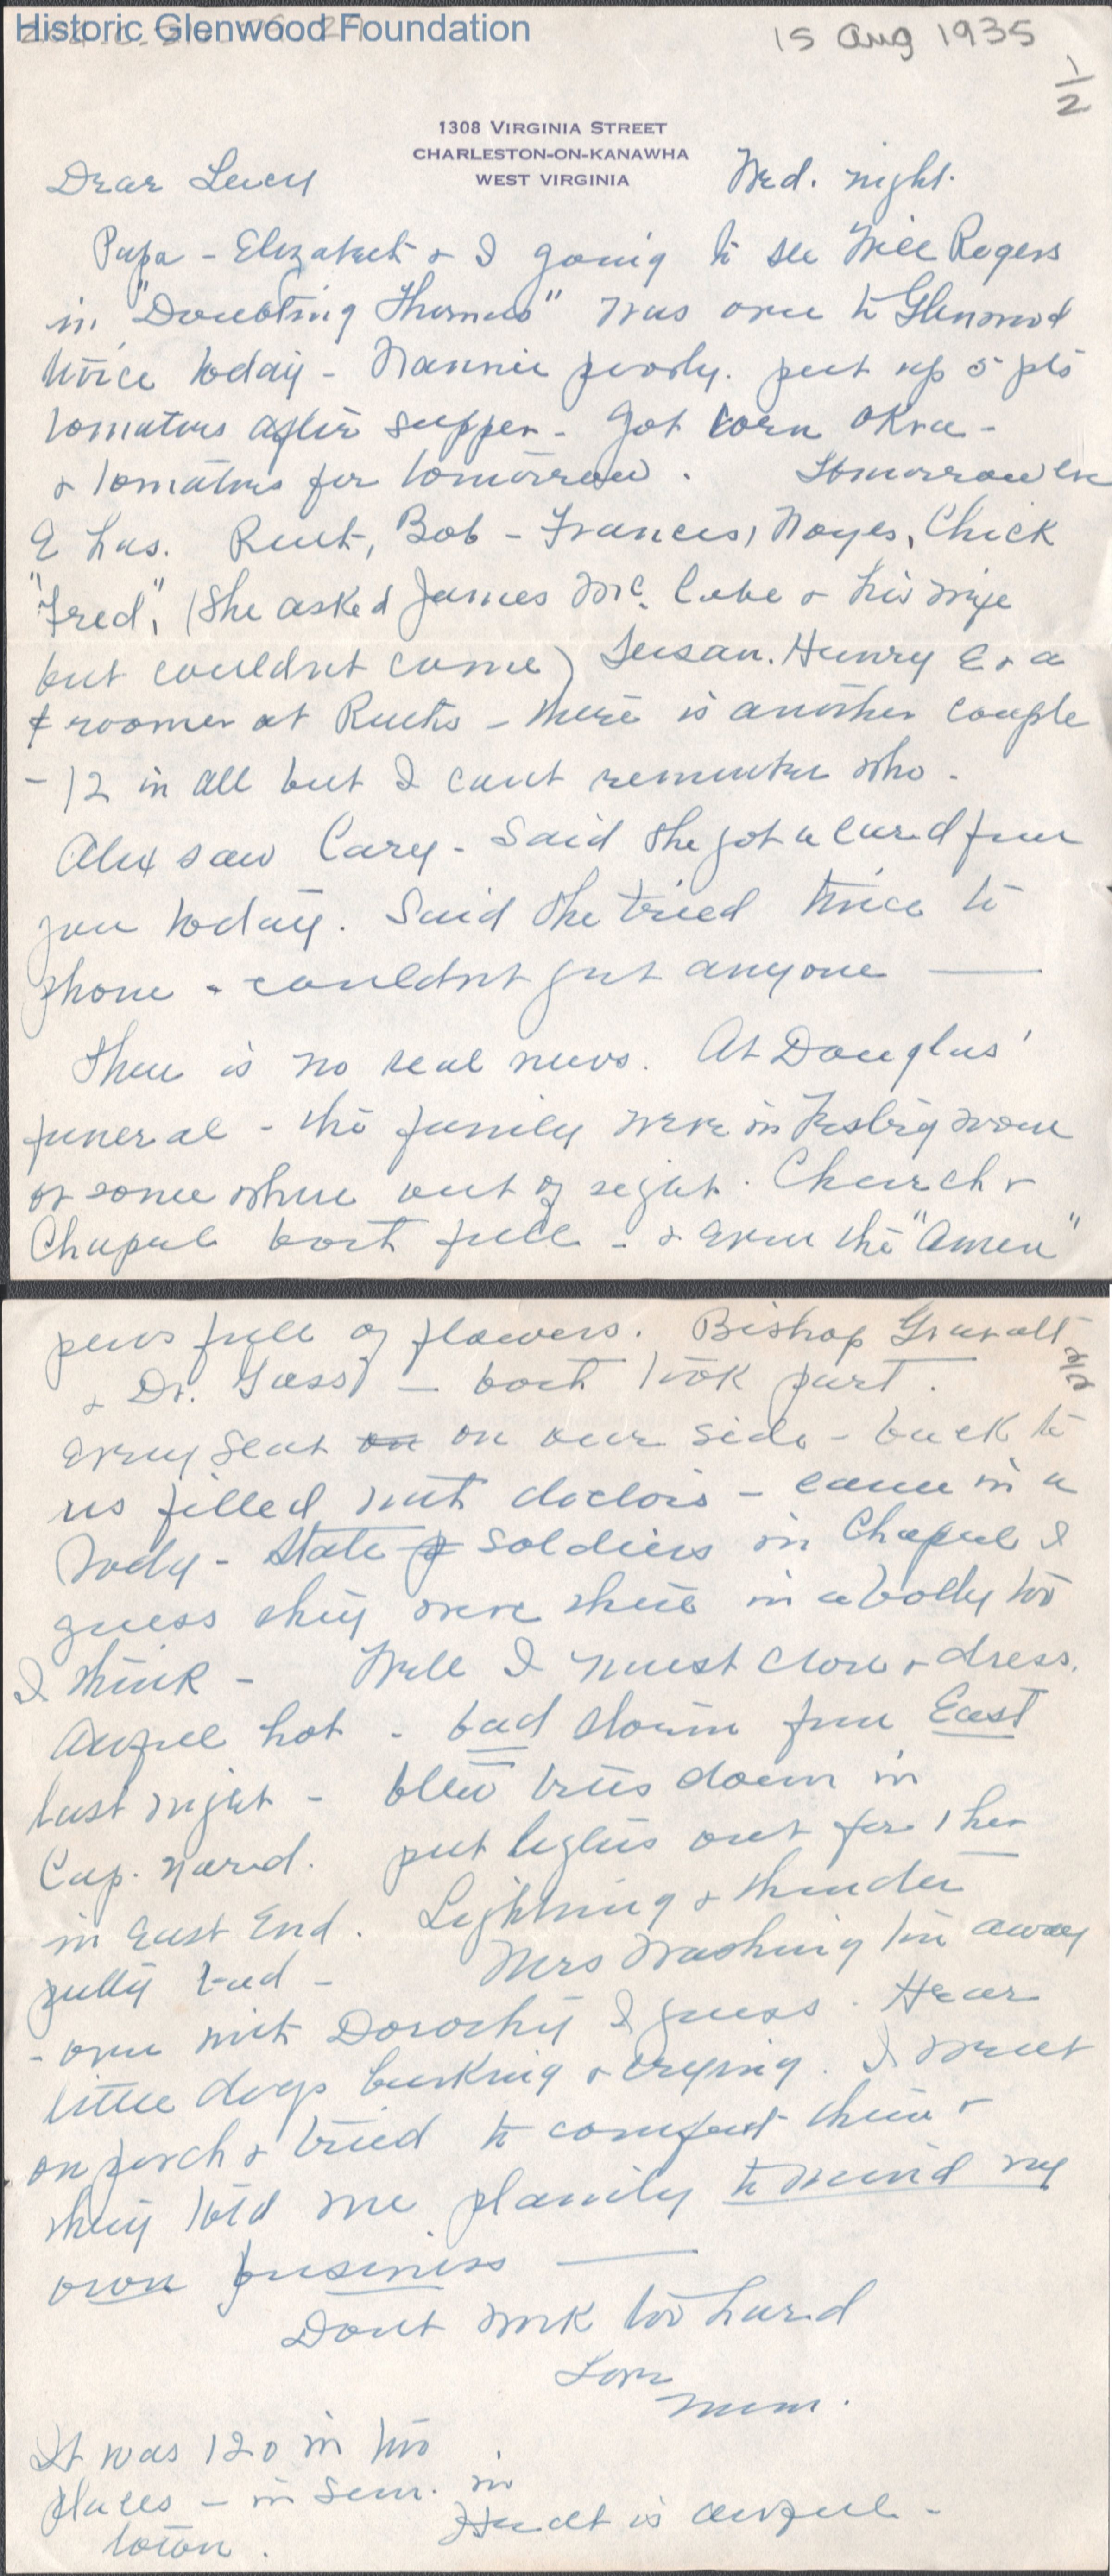 Historic Glenwood Foundation
15 Aug 1935
1/2
1308 VIRGINIA STREET
CHARLESTON-ON-KANAWHA
WEST VIRGINIA
Dear Lucy Wed. night.
Papa - Elizabeth & I going to see Will Rogers
in "Doubting Thomas" was over to Glenwood
twice today - Nannie poorly. put up 5 pts
tomatoes after supper - Got corn okra -
& tomatoes for tomorrow. Tomorrow eve
E has. Ruth, Bob - Frances, Noyes, Chick
"Fred", (She asked James Mc. Cabe & his wife
but couldnt come) Susan. Henry E & a
roomer at Ruths - there is another couple
- 12 in all but I cant remember who -
Alex saw Cary - Said she got a card from
you today. Said she tried twice to
phone - couldnt get anyone —
There is no real news. At Douglas'
funeral - the family were in Vestry room
or some where out of sight. Church &
Chapel both full - & even the "Amen"
pews full of flowers. Bishop Gravatt
2/2
& Dr. Gass - both took part.
every seat on on our side - back to
us filled with doctors - came in a
body - State soldiers in Chapel I
guess they were there in a body too
I think - Well I must close & dress.
Awful hot - bad storm from East
last night - blew trees down in
Cap. Yard. put lights out for 1 hr
in East End. Lightning & thunder
pretty bad - Mrs Washington away
- over with Dorothy I guess. Hear
little dogs barking & crying. I went
on porch & tried to comfort them &
they told me plainly to mind my
own business —
Dont work too hard
Love
Mum.
It was 120 in two
places - in sun. in
town. Heat is awful -